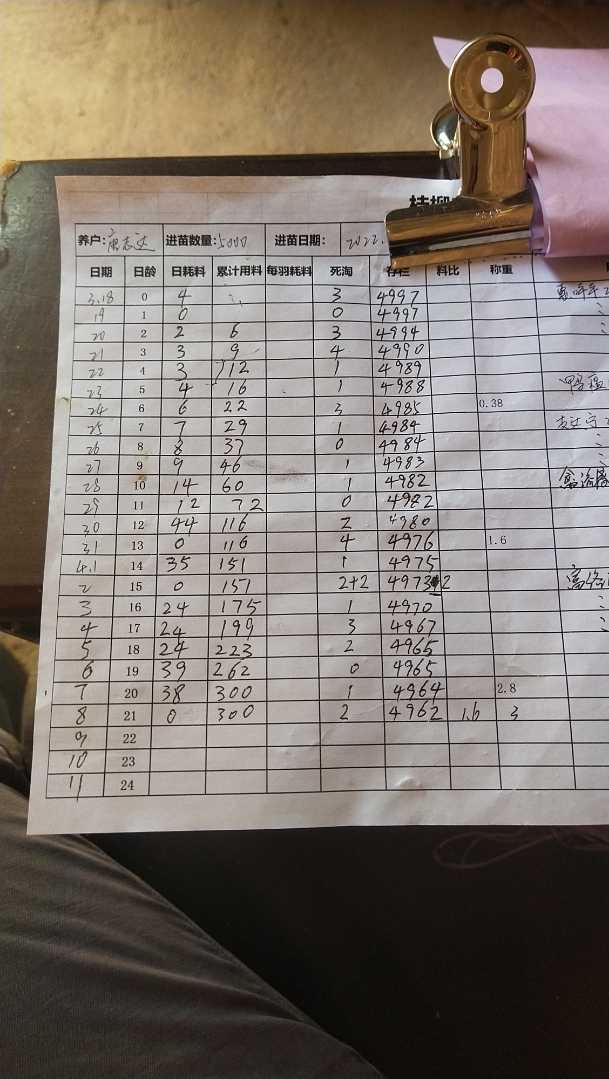 养户: 志达 进苗数量: 5000 进苗日期: 2022.
日期 日龄 日耗料 累计用料 每羽耗料 死淘 存栏 料比 称重
3.18 0 4 3 4997
19 1 0 0 4997
20 2 2 6 3 4994
21 3 3 9 4 4990
22 4 3 12 1 4989
23 5 4 16 1 4988
24 6 6 22 3 4985 0.38
25 7 7 29 1 4984
26 8 8 37 0 4984
27 9 9 46 1 4983
28 10 14 60 1 4982
29 11 12 72 0 4982
30 12 44 116 2 4980
31 13 0 116 4 4976 1.6
4.1 14 35 151 1 4975
2 15 0 151 2+2 4973 2
3 16 24 175 1 4970
4 17 24 199 3 4967
5 18 24 223 2 4965
6 19 39 262 0 4965
7 20 38 300 1 4964 2.8
8 21 0 300 2 4962 1.6 3
9 22
10 23
11 24